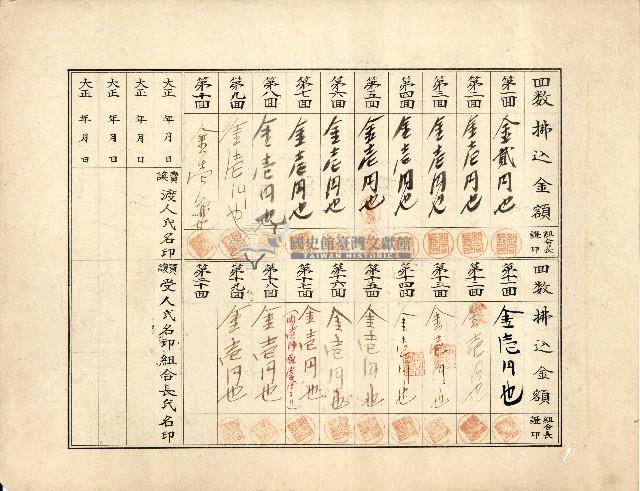 回数 拂込金額 組合長證印
第一回 金貳円也
第二回 金壱円也
第三回 金壱円也
第四回 金壱円也
第五回 金壱円也
第六回 金壱円也
第七回 金壱円也
第八回 金壱円也
第九回 金壱円也
第十回
回数 拂込金額 組合長證印
第十一回 金壱円也
第十二回 金壱円也
第十三回 金壱円也
第十四回 金壱円也
第十五回 金壱円也
第十六回 金壱円也
第十七回 金壱円也
第十八回 金壱円也
第十九回 金壱円也
第二十回
大正 年 月 日 賣讓渡人氏名印 買讓受人氏名印 組合長氏名印
大正 年 月 日
大正 年 月 日
大正 年 月 日
國史館臺灣文獻館
TAIWAN HISTORICA